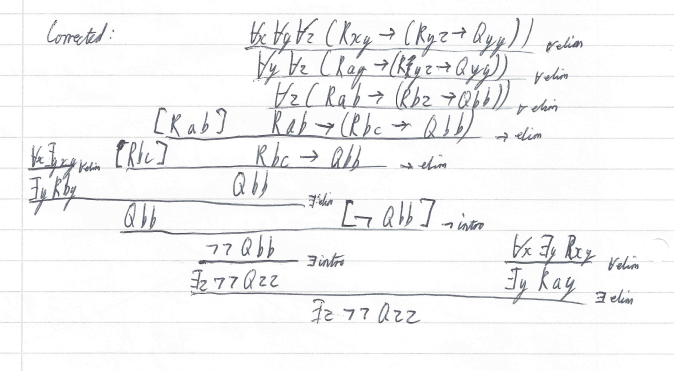 Corrected: ∀x ∀y ∀z (Rxy → (Ryz → Qyy))
∀elim
∀y ∀z (Ray → (Ryz → Qyy))
∀elim
∀z (Rab → (Rbz → Qbb))
∀elim
[Rab] Rab → (Rbc → Qbb)
→ elim
∀x ∃y Rxy ∀elim [Rbc] Rbc → Qbb
→ elim
∃y Rby Qbb
∃elim
Qbb [¬ Qbb]
¬ intro
¬¬ Qbb ∃intro ∀x ∃y Rxy ∀elim
∃z ¬¬ Qzz ∃y Ray ∃ elim
∃z ¬¬ Qzz